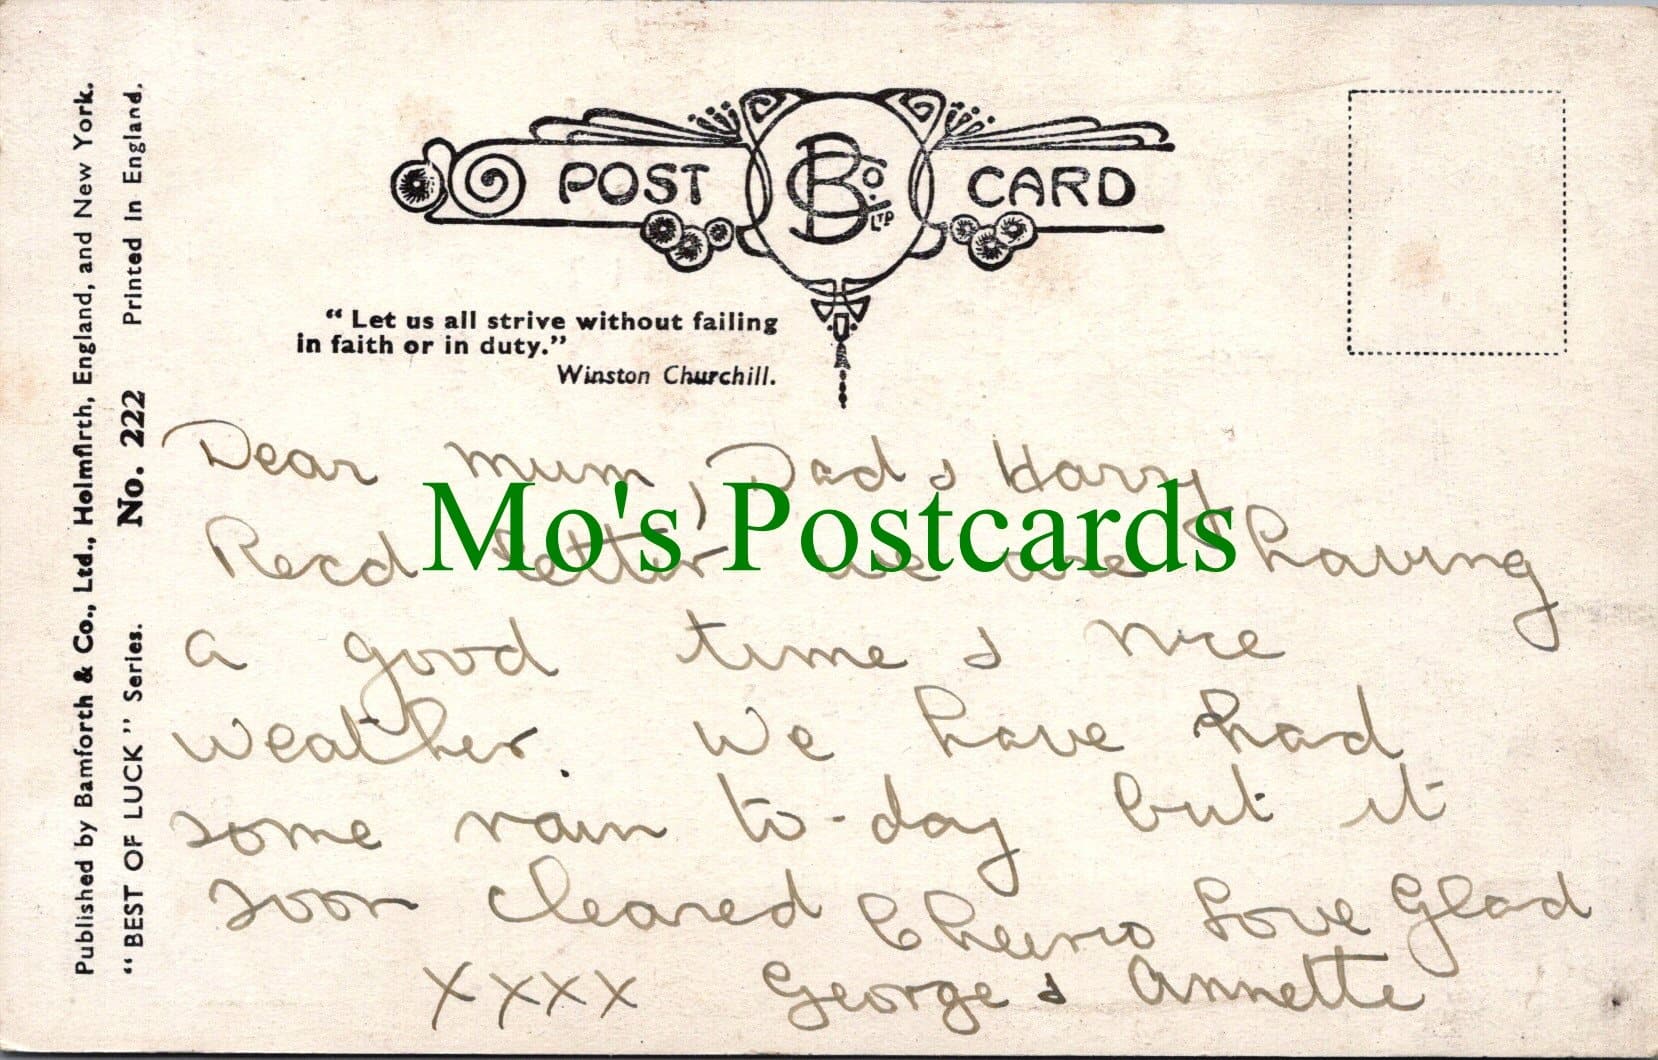 POST CARD
B Co. LTD
" Let us all strive without failing
in faith or in duty."
Winston Churchill.
Published by Bamforth & Co., Ltd., Holmfirth, England, and New York.
"BEST OF LUCK" Series. No. 222 Printed in England.
Dear Mum, Dad & Harry
Mo's Postcards
Recd letter we are having
a good time & nice
weather. We have had
some rain to-day but it
soon cleared Cheerio Love Glad
xxxx George & Annette